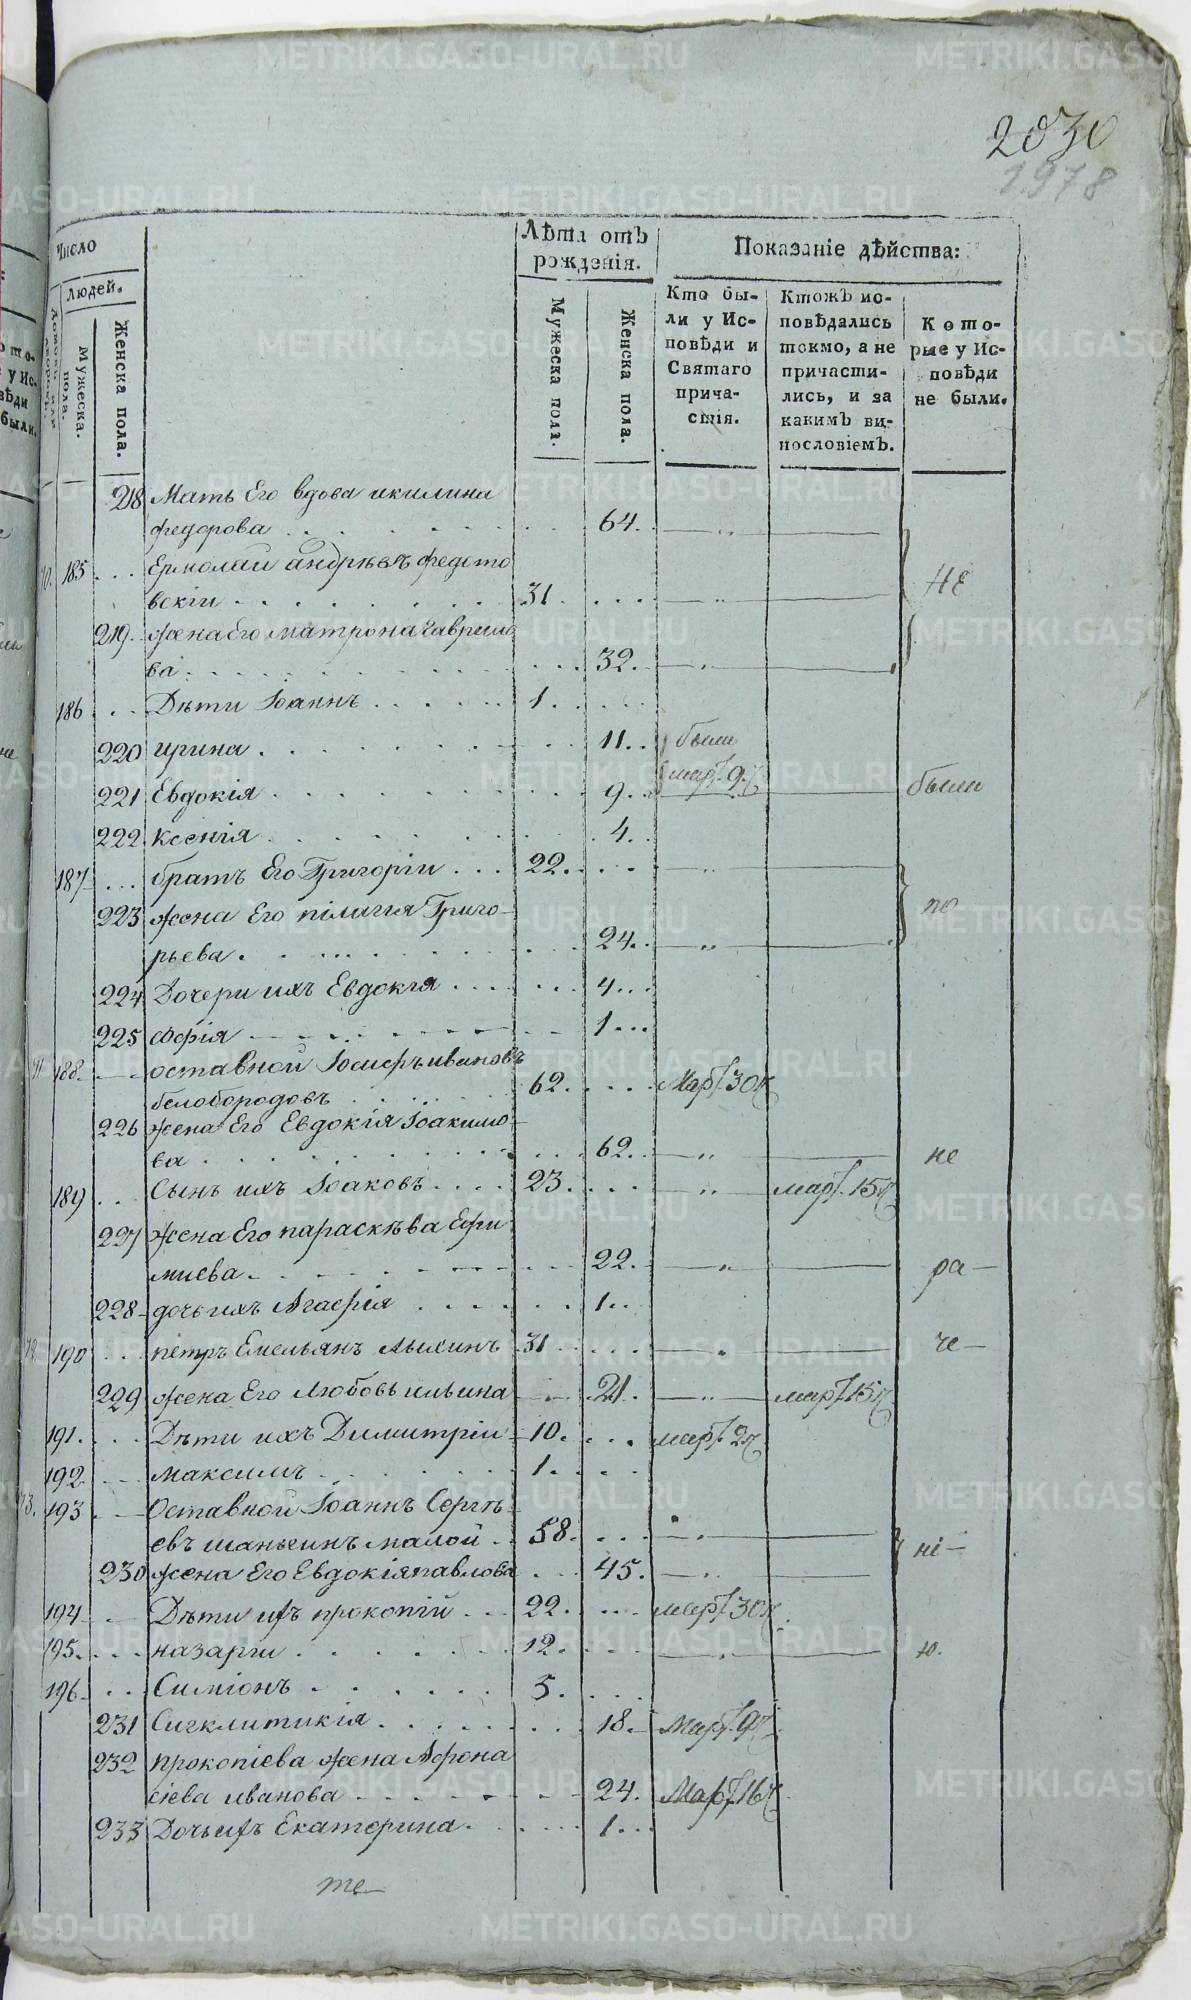 2030
1978
Число
Людей.
Мужеска. пола.
Женска пола.
Лѣта отъ рожденія.
Мужеска пола.
Женска пола.
Показаніе дѣйства:
Кто бы-
ли у Ис-
повѣди и
Святаго
прича-
стія.
Ктожъ ис-
повѣдались
токмо, а не
причасти-
лись, и за
какимъ ви-
нословіемъ.
Кото-
рые у Ис-
повѣди
не были.
218 Мать Его вдова акилина
федорова 64.
185 Ермолаи андрѣевъ федото
вскіи 31 НЕ
219 жена Его матрона гаврило
ва 32.
186 Дѣти Іоаннъ 1
220 ирина 11 были
221 Евдокія 9 мар. 9 были
222 ксенія 4
187 братъ Его Григоріи 22
223 жена Его пілагія Григо- по
рьева 24
224 Дочери ихъ Евдокія 4
225 софія 1
188 оставной Іосифъ ивановъ
белобородовъ 62 Мар. 30
226 жена Его Евдокія Іоакимо-
ва 62 не
189 Сынъ ихъ Іаковъ 23 мар. 15
227 жена Его параскѣва Ефи
миева 22 ра-
228 дочь ихъ Агафія 1
190 пётръ Емельянъ Лыхинъ 31 че-
229 жена Его любовь ильина 21 мар. 15
191 Дѣти ихъ Димитріи 10 мар. 2
192 максимъ 1
193 Оставной Іоаннъ Сергѣ-
евъ шаньгинъ малой 58 ні-
230 жена Его Евдокія павлова 45
194 Дѣти ихъ прокопій 22 мар. 30
195 назарги 12 ю.
196 Симіонъ 5
231 Сигклитикія 18 Мар. 9
232 прокопіева жена Афона
сіева иванова 24 Мар. 16
233 Дочь ихъ Екатерина 1
те-
METRIKI.GASO-URAL.RU